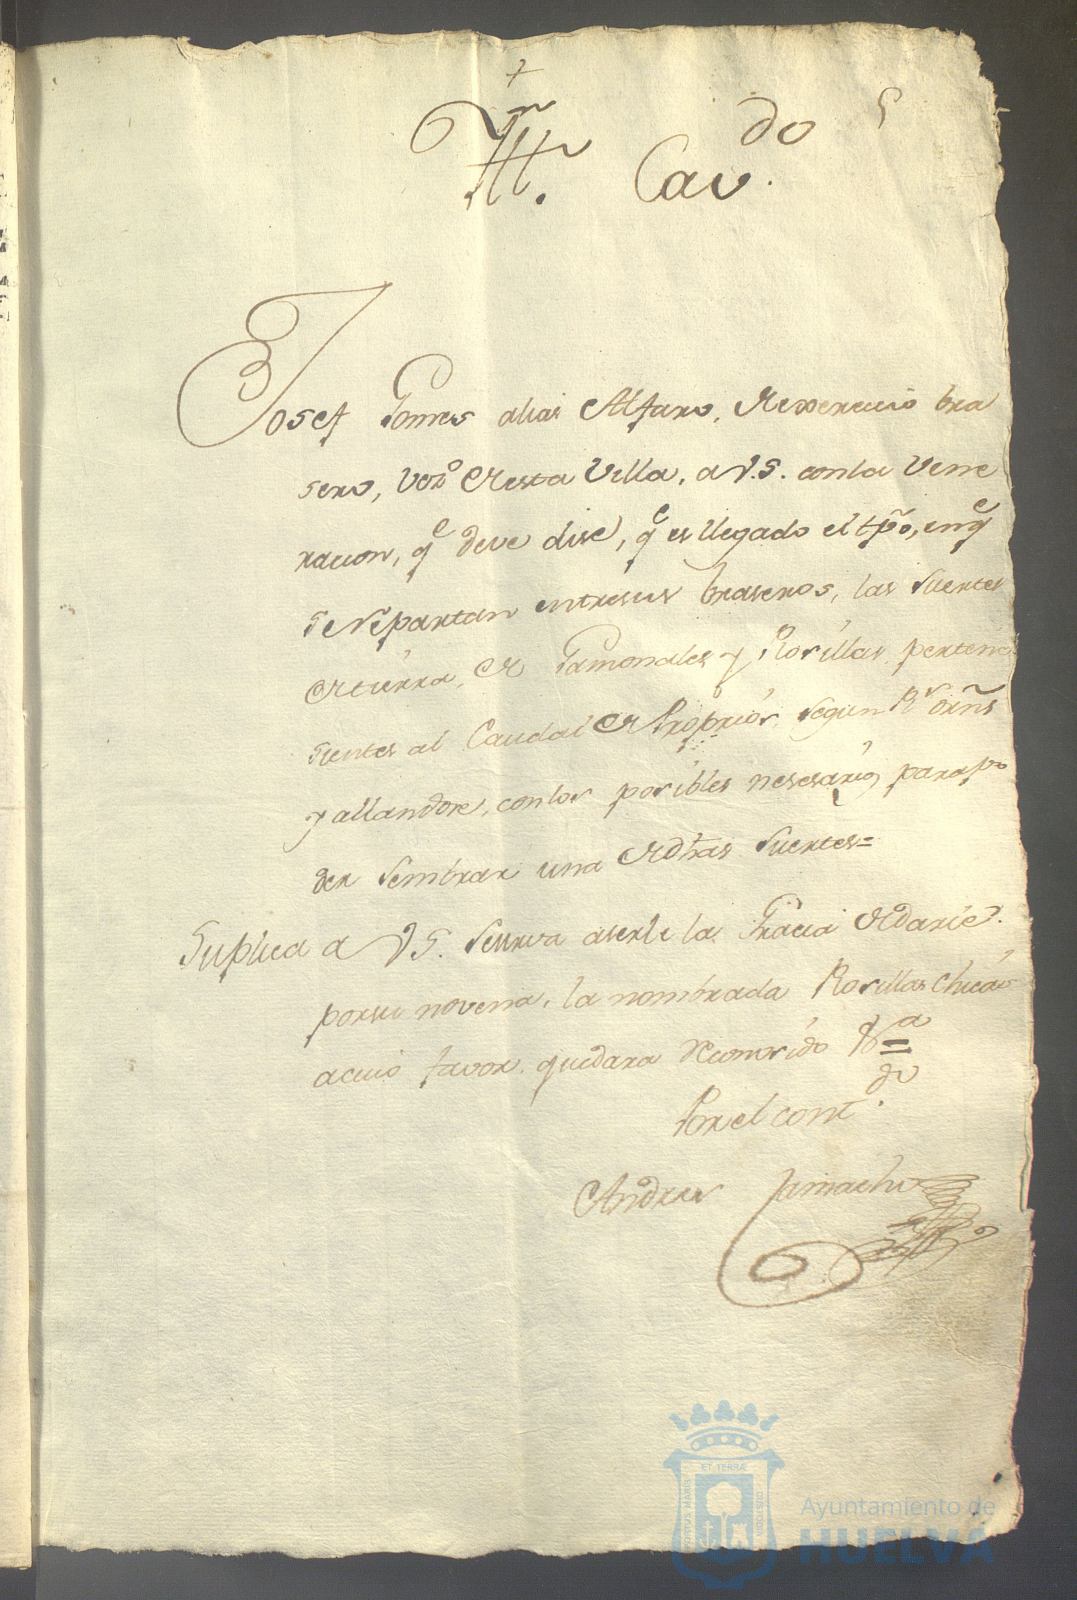 +
Ill. Cav.do
5
Josef Gomes alias Alfaro, de exercicio bra
sero, Vez.o de esta Villa, a V.S. con la Vene
racion, q.e deve dise, q.e es llegado el tpõ, en q.e
se Repartan entre sus braseros, las Suertes
de tierra, de Gamonales y Rosillas, pertene
sientes al Caudal de Propios, segun R.s orñs
y allandose, con los posibles nesesarios para po
der sembrar una de dhas Suertes=
Suplica a V.S. se sirva aserle la Gracia de darle
por su novena, la nombrada Rosillas Chica
a cuio favor, quedara Reconosido
Por el cont.do
Andres Camacho
Ayuntamiento de
HUELVA
PORTUS MARIS
ET TERRÆ
CUSTODIA